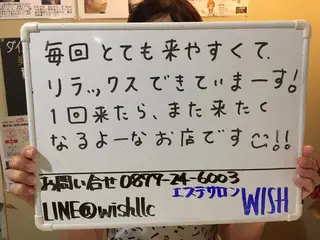 毎回 とても来やすくて、
リラックスできていまーす!
1回来たら、また来たく
なるよーなお店です!!
お問い合せ 0899-24-6003
エステサロン WISH
LINE@wishllc